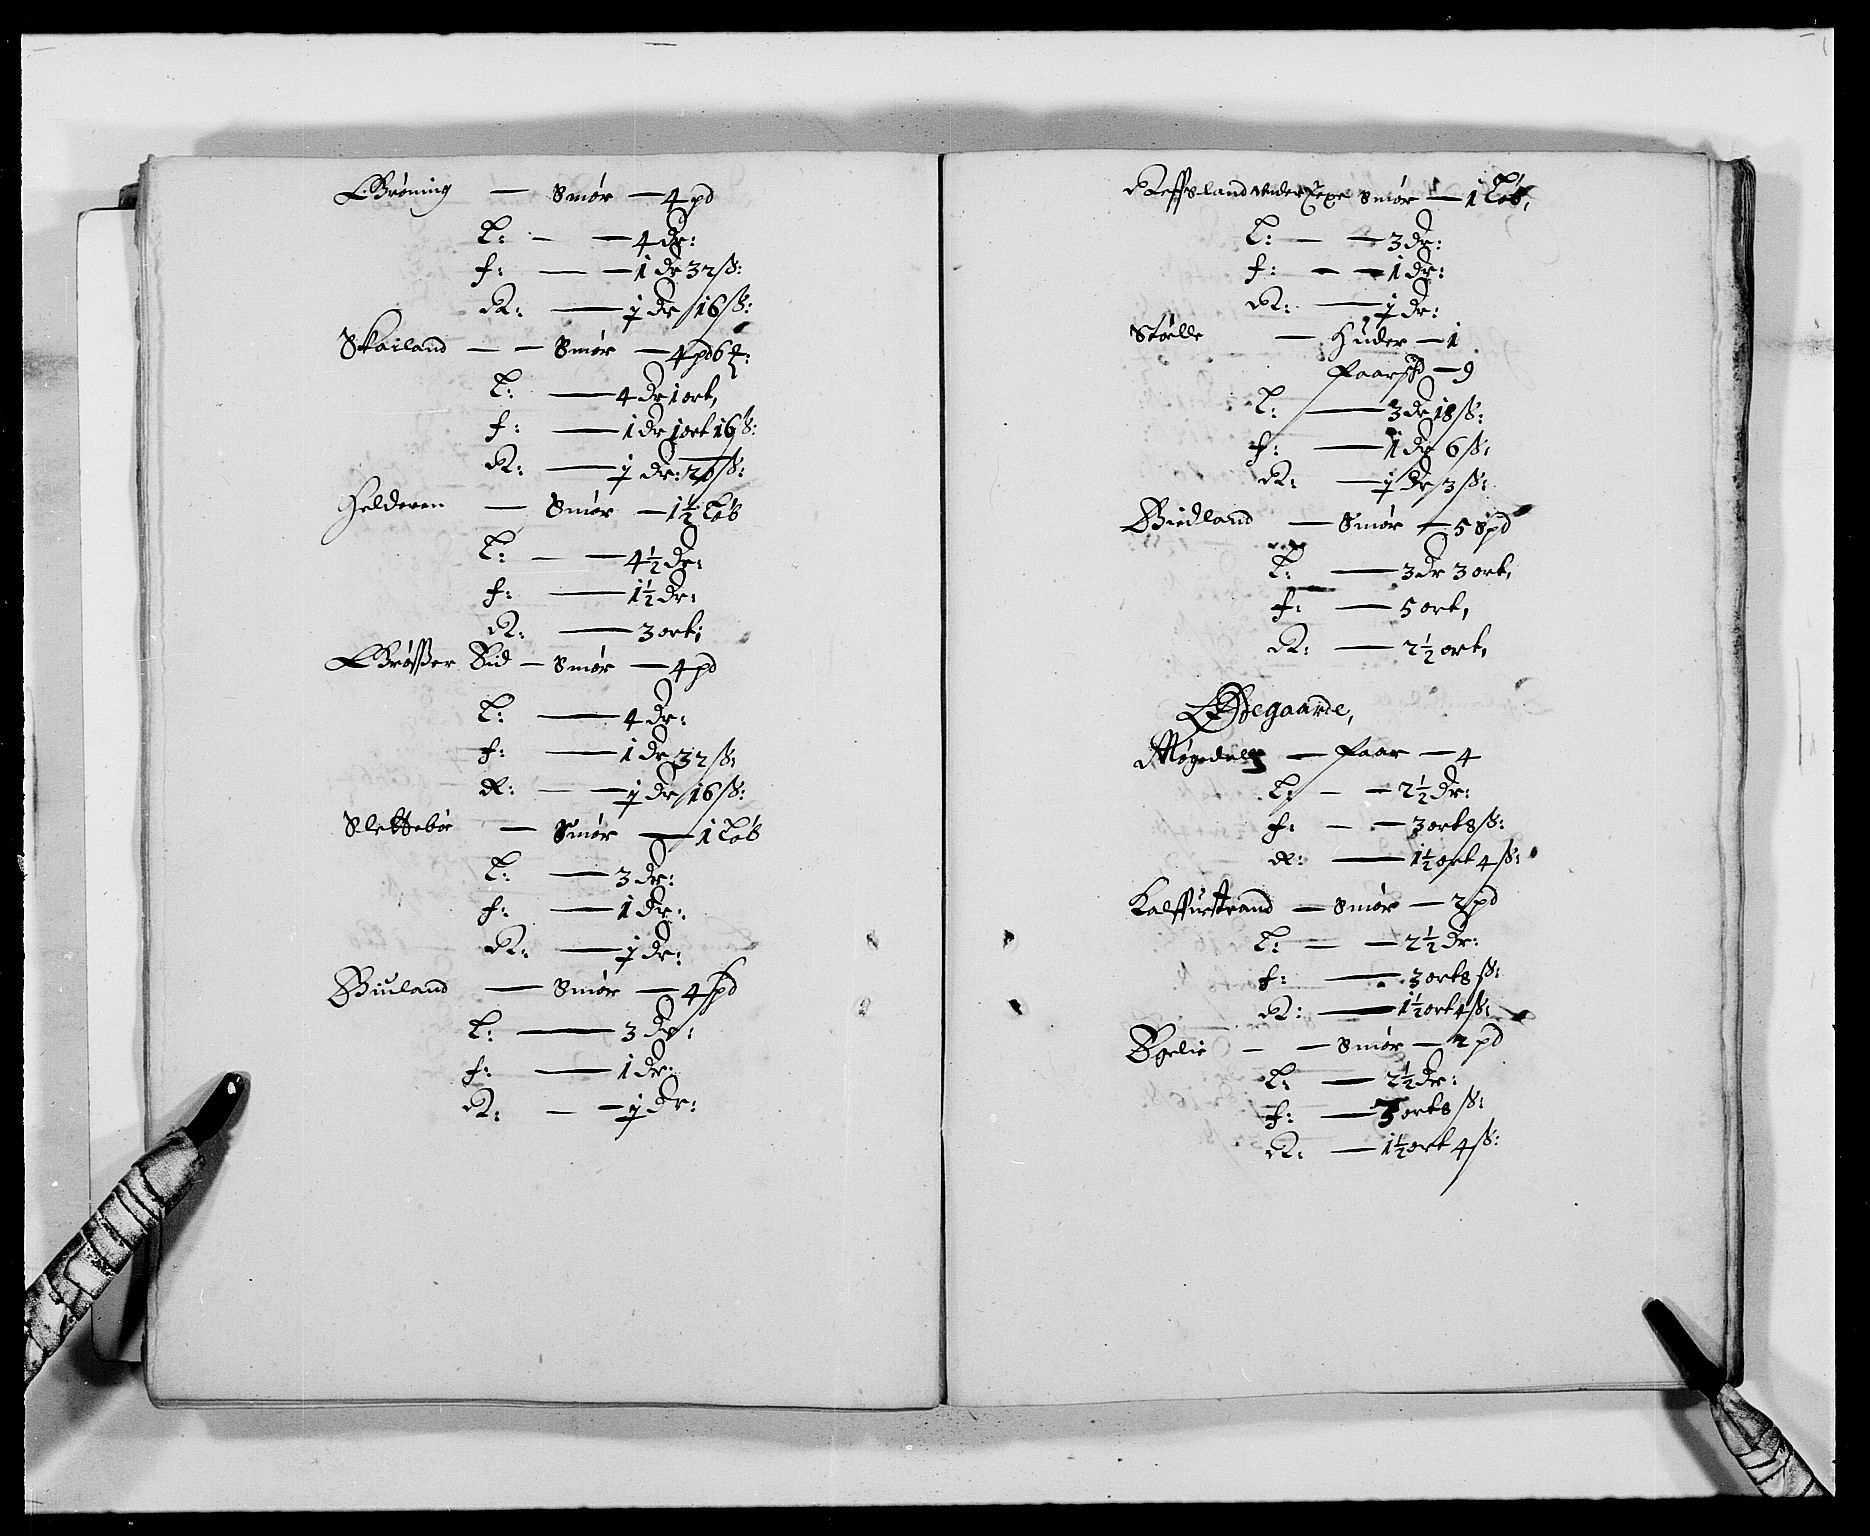 Grøning — Smør — 4 pd
L: — — 4 dr:
f: — — 1 dr 32 ß:
R: — ½ dr 16 ß:
Skailand — — Smør — 4 pd 6
L: — 4 dr 1 ort,
f: — 1 dr 1 ort 16 ß:
R: — ½ dr: 20 ß:
Helderen — Smør — 1½ Løb
L: — — 4½ dr:
f: — 1½ dr:
R: — 3 ort;
Grøsser Lid — Smør — 4 pd
L: — 4 dr:
f: — 1 dr 32 ß:
R: — — ½ dr 16 ß:
Slettebøe — Smør — 1 Løb
L: — 3 dr:
f: — 1 dr:
R: — ½ dr:
Biuland — Smør — 4 spd
L: — 3 dr:
f: — 1 dr:
R: — — ½ dr:
Reffsland under Smør — 1 Løb,
L: — — 3 dr:
f: — — 1 dr:
R: — ½ dr:
Stølle — Huder — 1
Faarschd — 9
L: — 3 dr 18 ß:
f: — 1 dr 6 ß:
R: — ½ dr 3 ß:
Birdland — Smør — 5 spd
L: — 3 dr 3 ort,
f: — 5 ort,
R: — 2½ ort,
Ødegaarde,
Møgedall — Faar — 4
L: — — 2½ dr:
f: — — 3 ort 8 ß:
R: — 1½ ort 4 ß:
Kalffuestrand — Smør — 2 pd
L: — — 2½ dr:
f: — 3 ort 8 ß:
R: — 1½ ort 4 ß:
Bgelie — — Smør — 2 pd
L: — 2½ dr:
f: — 3 ort 8 ß:
R: — 1½ ort 4 ß: